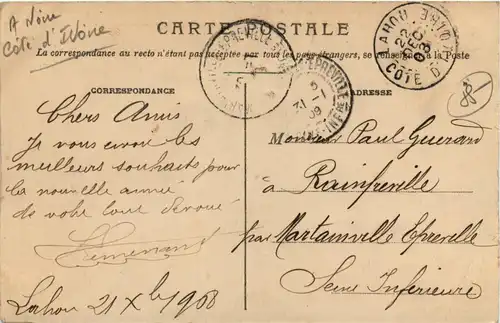 A Nöne
Côte d'Ivoire
CARTE POSTALE
La correspondance au recto n'étant pas acceptée par tous les pays étrangers, se renseigner à la Poste
LAHOU
22 DEC 08
CÔTE D'IVOIRE
EPREVILLE
31
09
SEINE-INFRE
CORRESPONDANCE
ADRESSE
88
Chers Amis
Je vous envoie les
meilleurs souhaits pour
la nouvelle année
de votre tout dévoué
Lahou 21 Xbre 1908
Monsieur Paul Guerard
à Rainfreville
par Martainville Epreville
Seine Inférieure